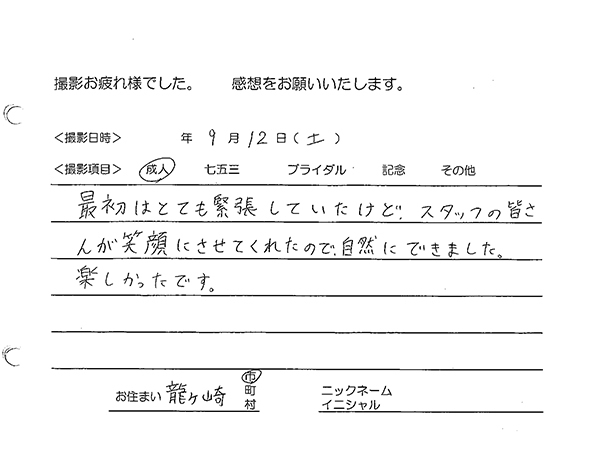 撮影お疲れ様でした。 感想をお願いいたします。
＜撮影日時＞ 年 9 月 12 日（土）
＜撮影項目＞ 成人 七五三 ブライダル 記念 その他
最初はとても緊張していたけど、スタッフの皆さ
んが笑顔にさせてくれたので、自然にできました。
楽しかったです。
お住まい 龍ヶ崎 市 町 村 ニックネーム イニシャル